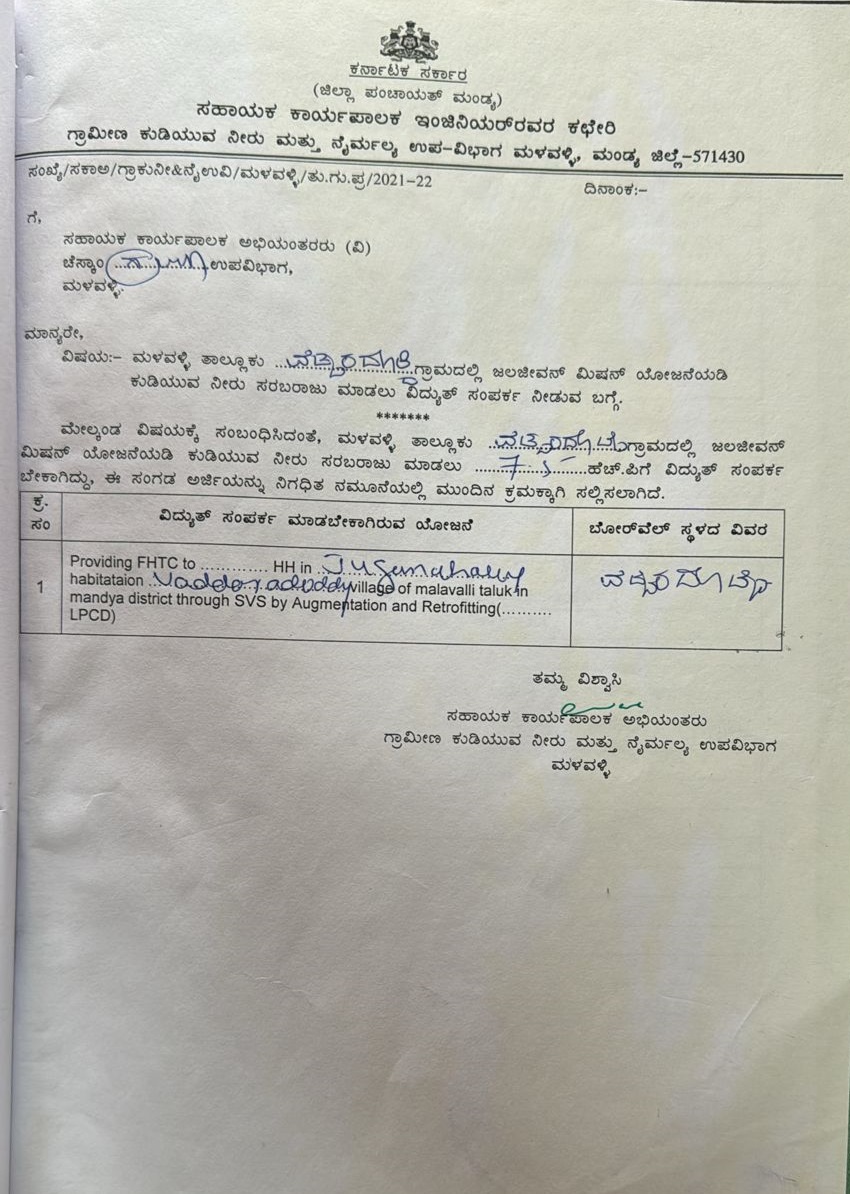 ಕರ್ನಾಟಕ ಸರ್ಕಾರ
(ಜಿಲ್ಲಾ ಪಂಚಾಯತ್ ಮಂಡ್ಯ)
ಸಹಾಯಕ ಕಾರ್ಯಪಾಲಕ ಇಂಜಿನಿಯರ್‌ರವರ ಕಛೇರಿ
ಗ್ರಾಮೀಣ ಕುಡಿಯುವ ನೀರು ಮತ್ತು ನೈರ್ಮಲ್ಯ ಉಪ-ವಿಭಾಗ ಮಳವಳ್ಳಿ, ಮಂಡ್ಯ ಜಿಲ್ಲೆ-571430
ಸಂಖ್ಯೆ/ಸಕಾಅ/ಗ್ರಾಕುನೀ&ನೈಉವಿ/ಮಳವಳ್ಳಿ/ತು.ಗು.ಪ್ರ/2021-22 ದಿನಾಂಕ:-
ಗೆ,
ಸಹಾಯಕ ಕಾರ್ಯಪಾಲಕ ಅಭಿಯಂತರರು (ವಿ)
ಚೆಸ್ಕಾಂ ಉಪವಿಭಾಗ,
ಮಳವಳ್ಳಿ.
ಮಾನ್ಯರೇ,
ವಿಷಯ:- ಮಳವಳ್ಳಿ ತಾಲ್ಲೂಕು ಗ್ರಾಮದಲ್ಲಿ ಜಲಜೀವನ್ ಮಿಷನ್ ಯೋಜನೆಯಡಿ
ಕುಡಿಯುವ ನೀರು ಸರಬರಾಜು ಮಾಡಲು ವಿದ್ಯುತ್ ಸಂಪರ್ಕ ನೀಡುವ ಬಗ್ಗೆ.
*******
ಮೇಲ್ಕಂಡ ವಿಷಯಕ್ಕೆ ಸಂಬಂಧಿಸಿದಂತೆ, ಮಳವಳ್ಳಿ ತಾಲ್ಲೂಕು ಗ್ರಾಮದಲ್ಲಿ ಜಲಜೀವನ್
ಮಿಷನ್ ಯೋಜನೆಯಡಿ ಕುಡಿಯುವ ನೀರು ಸರಬರಾಜು ಮಾಡಲು 7.5 ಹೆಚ್.ಪಿಗೆ ವಿದ್ಯುತ್ ಸಂಪರ್ಕ
ಬೇಕಾಗಿದ್ದು, ಈ ಸಂಗಡ ಅರ್ಜಿಯನ್ನು ನಿಗಧಿತ ನಮೂನೆಯಲ್ಲಿ ಮುಂದಿನ ಕ್ರಮಕ್ಕಾಗಿ ಸಲ್ಲಿಸಲಾಗಿದೆ.
ಕ್ರ.ಸಂ ವಿದ್ಯುತ್ ಸಂಪರ್ಕ ಮಾಡಬೇಕಾಗಿರುವ ಯೋಜನೆ ಬೋರ್‌ವೆಲ್ ಸ್ಥಳದ ವಿವರ
1 Providing FHTC to ............ HH in
habitataion village of malavalli taluk in
mandya district through SVS by Augmentation and Retrofitting(.........
LPCD)
ತಮ್ಮ ವಿಶ್ವಾಸಿ
ಸಹಾಯಕ ಕಾರ್ಯಪಾಲಕ ಅಭಿಯಂತರು
ಗ್ರಾಮೀಣ ಕುಡಿಯುವ ನೀರು ಮತ್ತು ನೈರ್ಮಲ್ಯ ಉಪವಿಭಾಗ
ಮಳವಳ್ಳಿ